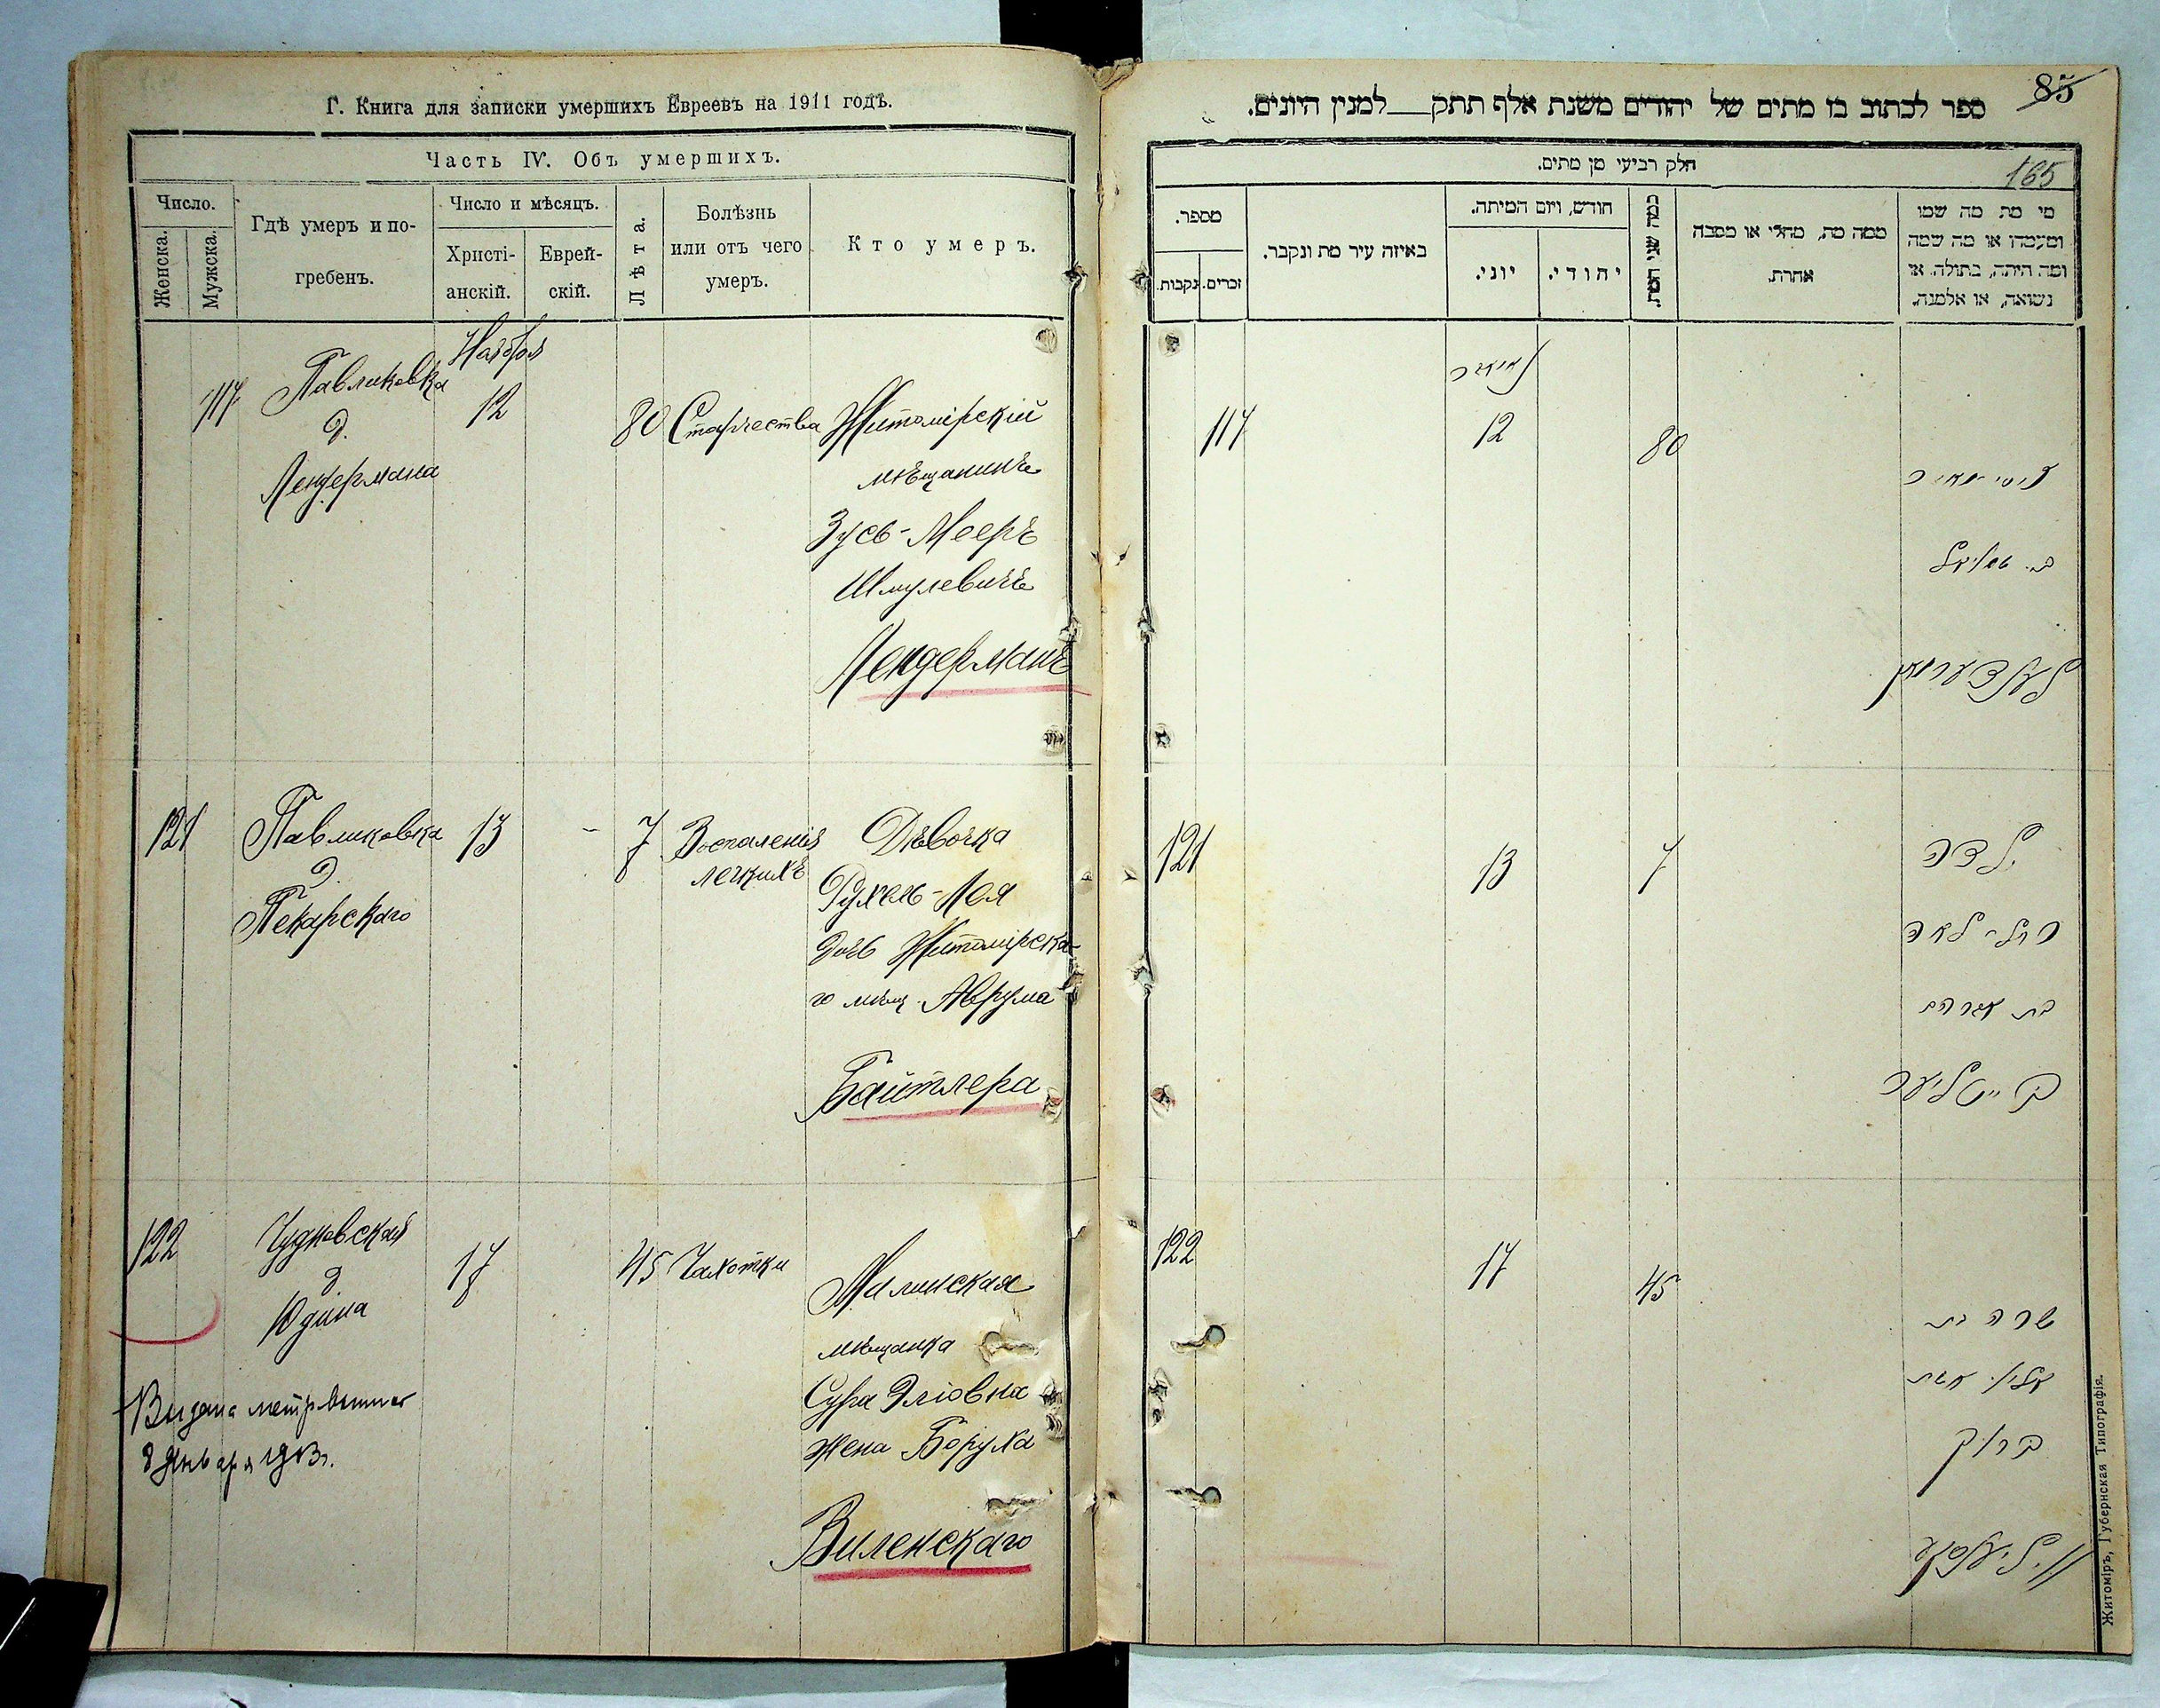 Г. Книга для записки умершихъ Евреевъ на 1911 годъ.
Часть IV. Объ умершихъ.
Число.
Женска.
Мужска.
Гдѣ умеръ и по-
гребенъ.
Число и мѣсяцъ.
Христі-
анскій.
Еврей-
скій.
Лѣта.
Болѣзнь
или отъ чего
умеръ.
Кто умеръ.
117
Павликовка
д.
Лендермана
Ноября
12
80
Старчества
Житомірскій
мѣщанинъ
Зусь-Мееръ
Шмулевичъ
Лендерманъ
121
Павликовка
д.
Пекарскаго
13
7
Воспаленія
легкихъ
Дѣвочка
Рухель-Лея
дочь Житомірска-
го мѣщ. Аврума
Байтлера
122
Чудновская
д
Юдина
17
45
Чахотки
мѣщанка
Сура Эліовна
жена Боруха
Виленскаго
Видана
8 Января 1913г.
85
ספר לכתוב בו מתים של יהודים משנת אלף תתק למנין היונים.
165
חלק רביעי מן מתים.
מספר.
נקבות.
זכרים.
באיזה עיר מת ונקבר.
חודש, ויום המיתה.
יוני.
יהודי.
כמה שני המת.
ממה מת, מחלי או מסבה
אחרת.
מי מת מה שמו
ומעמדו או מה שמה
ומה היתה, בתולה או
נשואה, או אלמנה.
117
12
80
זוסי-מאיר
ב. שמואל
לענדערמאן
121
13
7
ילדה
רחל-לאה
בת אברהם
בייטליער
122
17
45
שרה בת
אליו אשת
ברוך
Житоміръ, Губернская Типографія.